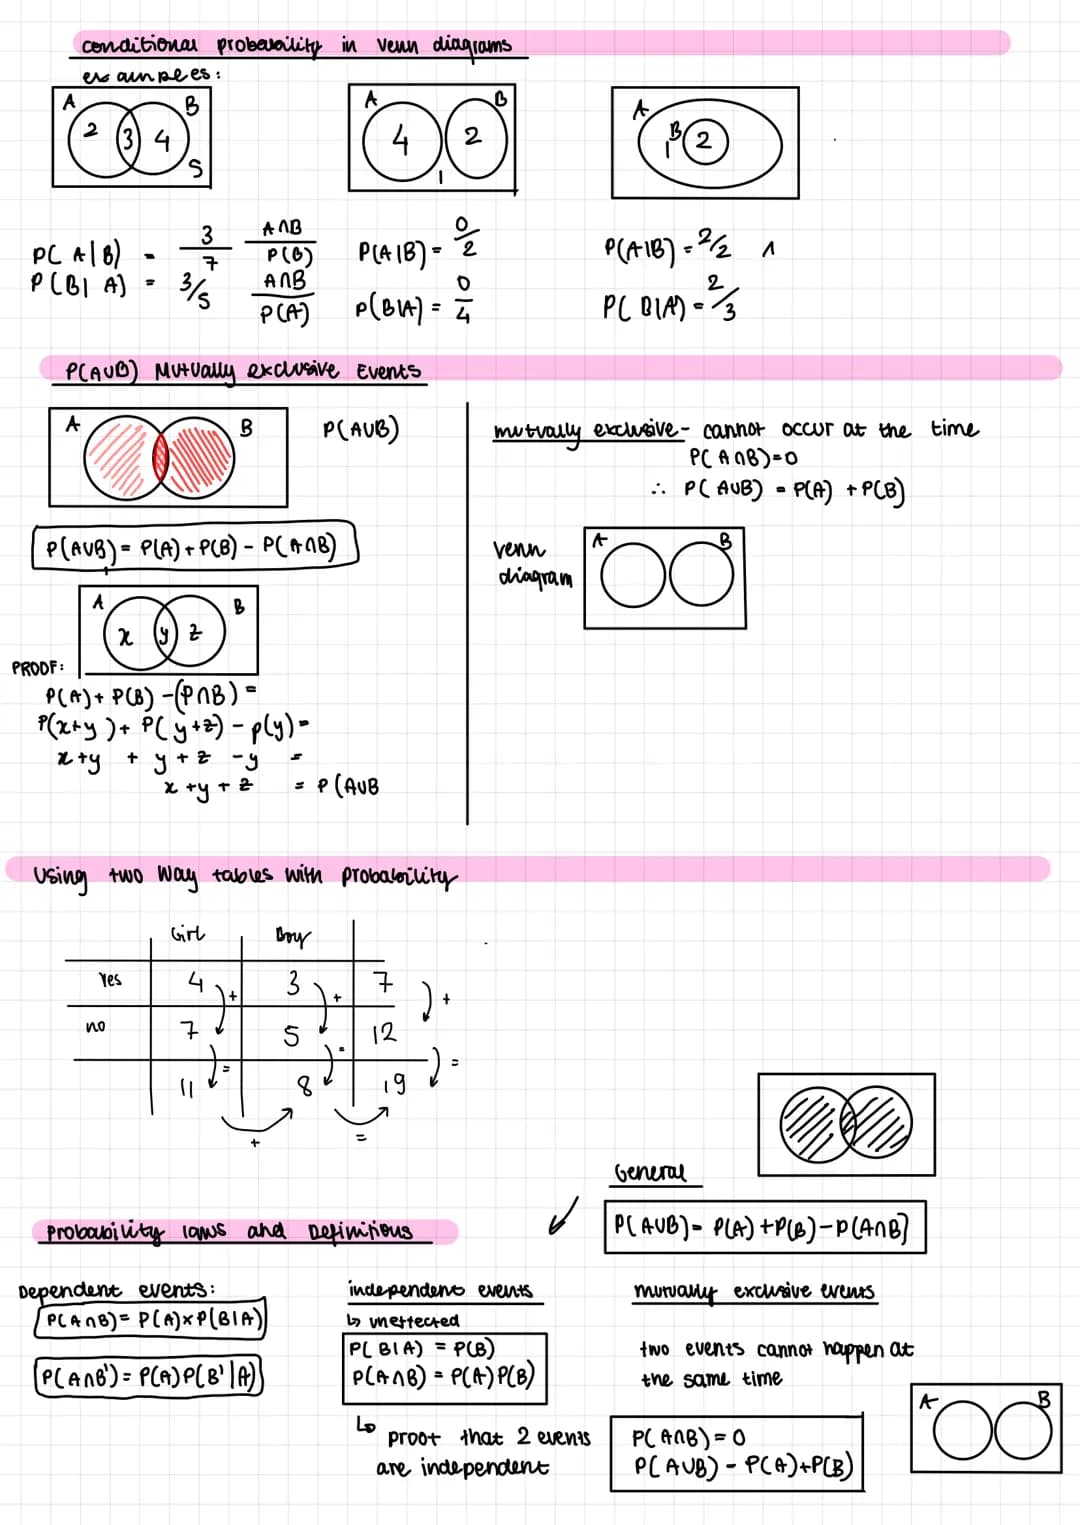 conditional probability in venn diagrams
examples:
A B
2 3 4
5
A B
4 2
1
A
B
1 2
P( A|B) = 3/7 A∩B/P(B)
P(B| A) = 3/5 A∩B/P(A)
P(A|B) = 0/2
P(B|A) = 0/4
P(A|B) = 2/2 1
P( B|A) = 2/3
P(AUB) Mutually exclusive Events
A B
P(AUB)
P(AUB) = P(A) + P(B) - P(A∩B)
A B
x y z
PROOF:
P(A) + P(B) - (P∩B) =
P(x+y ) + P( y+z) - p(y) =
x+y + y + z - y =
x + y + z = P (AUB
mutually exclusive - cannot occur at the time
P( A∩B) = 0
∴ P( AUB) = P(A) + P(B)
venn
diagram
A B
Using two Way tables with probability
Girl Boy
Yes 4 3 7
+ + +
no 7 5 12
= = =
11 8 19
+ =
General
P( AUB) = P(A) + P(B) - P(A∩B)
probability laws and Definitions
Dependent events:
P( A∩B) = P(A) x P(B|A)
P( A∩B') = P(A) P( B' | A)
independent events
P( B|A) = P(B)
P(A∩B) = P(A) P(B)
proot that 2 events
are independent
mutually exclusive events
two events cannot happen at
the same time
A B
P( A∩B) = 0
P( AUB) = P(A) + P(B)